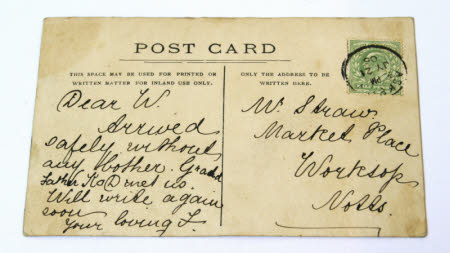 POST CARD
THIS SPACE MAY BE USED FOR PRINTED OR
WRITTEN MATTER FOR INLAND USE ONLY.
ONLY THE ADDRESS TO BE
WRITTEN HERE.
Dear W.
Arrived
safely without
any bother. Grand
father K & D met us.
Will write again
soon
Your loving F.
Mr Straw
Market Place
Worksop
Notts.